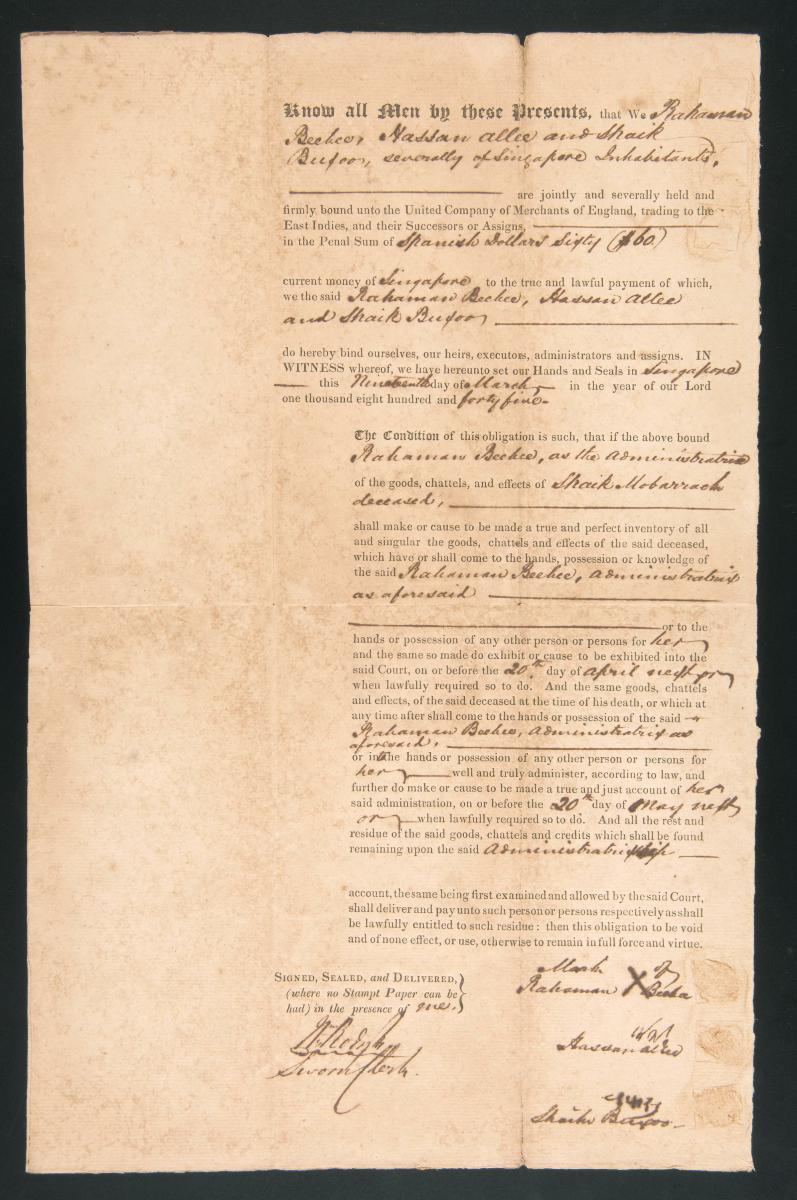 Know all Men by these Presents, that We Rahaman
Beebee, Hassan Allee and Shaik
Buxoo, severally of Singapore Inhabitants,
are jointly and severally held and
firmly bound unto the United Company of Merchants of England, trading to the
East Indies, and their Successors or Assigns,
in the Penal Sum of Spanish Dollars Sixty ($60.)
current money of Singapore to the true and lawful payment of which,
we the said Rahaman Beebee, Hassan Allee
and Shaik Buxoo
do hereby bind ourselves, our heirs, executors, administrators and assigns. IN
WITNESS whereof, we have hereunto set our Hands and Seals in Singapore
this Nineteenth day of March in the year of our Lord
one thousand eight hundred and forty five.
The Condition of this obligation is such, that if the above bound
Rahaman Beebee, as the administratrix
of the goods, chattels, and effects of Shaik Mobarrack
deceased,
shall make or cause to be made a true and perfect inventory of all
and singular the goods, chattels and effects of the said deceased,
which have or shall come to the hands, possession or knowledge of
the said Rahaman Beebee, administratrix
as aforesaid
or to the
hands or possession of any other person or persons for her
and the same so made do exhibit or cause to be exhibited into the
said Court, on or before the 20th day of April next or
when lawfully required so to do. And the same goods, chattels
and effects, of the said deceased at the time of his death, or which at
any time after shall come to the hands or possession of the said
Rahaman Beebee, administratrix as
aforesaid,
or into the hands or possession of any other person or persons for
her well and truly administer, according to law, and
further do make or cause to be made a true and just account of her
said administration, on or before the 20th day of May next
or when lawfully required so to do. And all the rest and
residue of the said goods, chattels and credits which shall be found
remaining upon the said Administratrix
account, the same being first examined and allowed by the said Court,
shall deliver and pay unto such person or persons respectively as shall
be lawfully entitled to such residue: then this obligation to be void
and of none effect, or use, otherwise to remain in full force and virtue.
SIGNED, SEALED, and DELIVERED,
(where no Stampt Paper can be
had) in the presence of me.
Sworn Clerk.
Mark of
Rahaman X Beeba
Hassan Allee
Shaik Buxoo